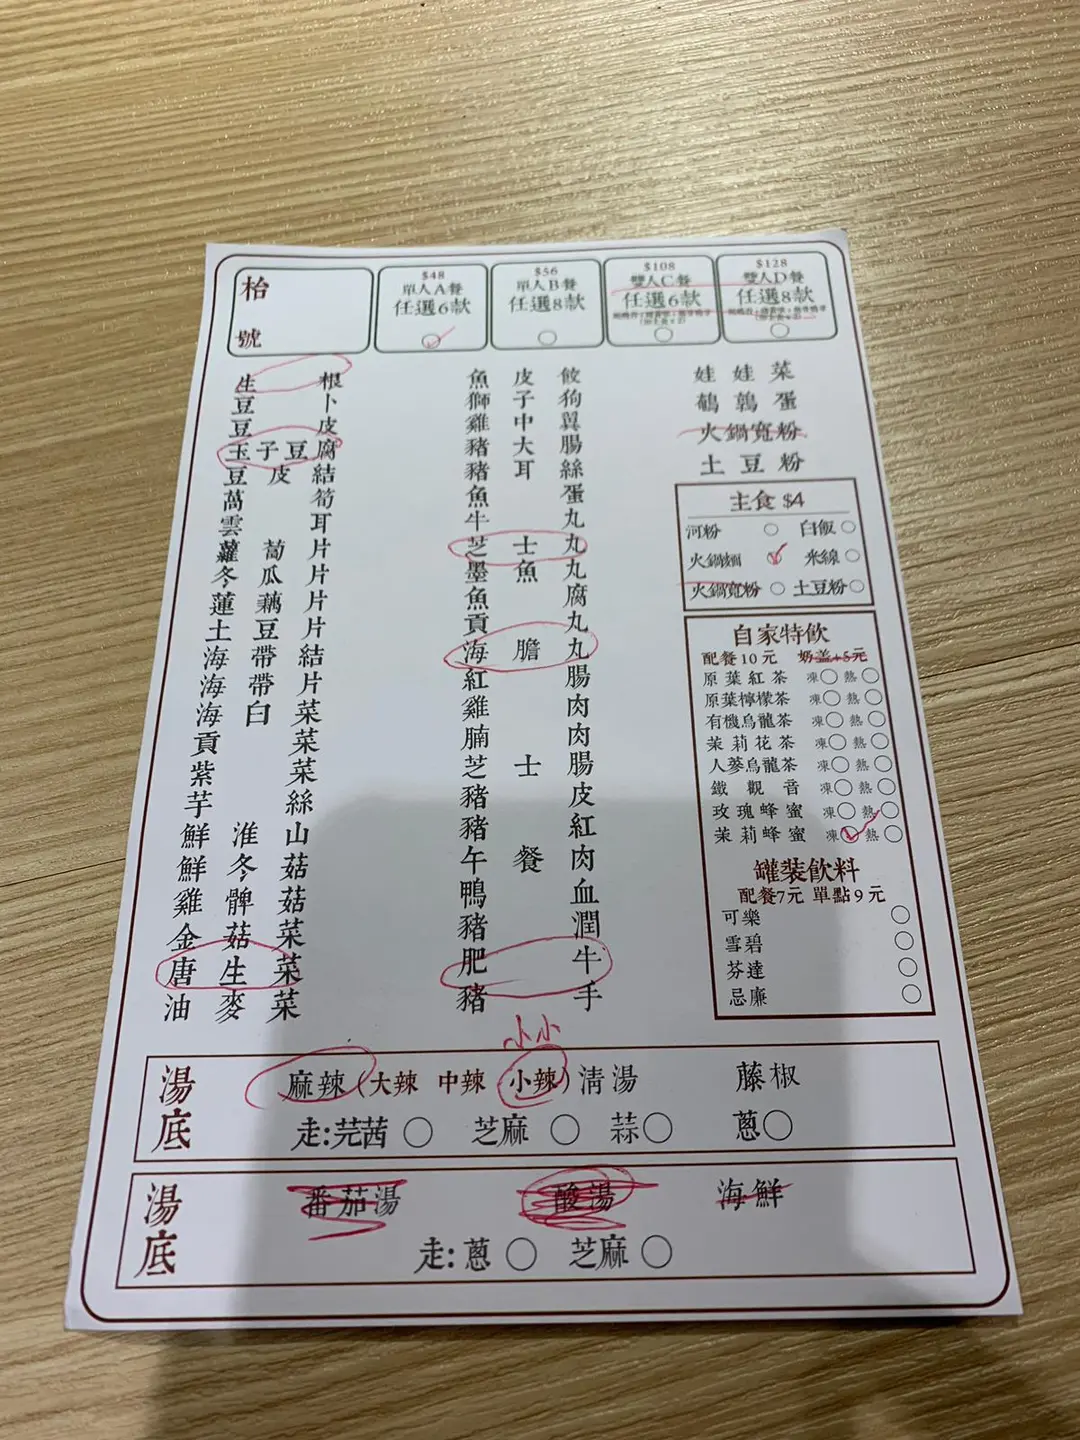 枱號
$48
單人A餐
任選6款
$56
單人B餐
任選8款
$108
雙人C餐
任選6款
$128
雙人D餐
任選8款
生根
豆卜
豆皮
玉子豆腐
豆皮結
萬筍
雲耳
蘿蔔片
冬瓜片
蓮藕片
土豆片
海帶結
海帶片
海白菜
貢菜
紫菜
芋絲
鮮淮山
鮮冬菇
雞髀菇
金菇菜
唐生菜
油麥菜
魚皮餃
獅子狗
雞中翼
豬大腸
豬耳絲
魚蛋
牛丸
芝士丸
墨魚丸
魚腐
貢丸
海膽丸
紅腸
雞肉
腩肉
芝士腸
豬皮
豬紅
午餐肉
鴨血
豬潤
肥牛
豬手
娃娃菜
鵪鶉蛋
火鍋寬粉
土豆粉
主食 $4
河粉 白飯
火鍋麵 米線
火鍋寬粉 土豆粉
自家特飲
配餐10元 奶蓋+5元
原葉紅茶 凍 熱
原葉檸檬茶 凍 熱
有機烏龍茶 凍 熱
茉莉花茶 凍 熱
人蔘烏龍茶 凍 熱
鐵觀音 凍 熱
玫瑰蜂蜜 凍 熱
茉莉蜂蜜 凍 熱
罐裝飲料
配餐7元 單點9元
可樂
雪碧
芬達
忌廉
小小
湯底
麻辣 (大辣 中辣 小辣) 清湯 藤椒
走:芫茜 芝麻 蒜 蔥
湯底
番茄湯 酸湯 海鮮
走:蔥 芝麻